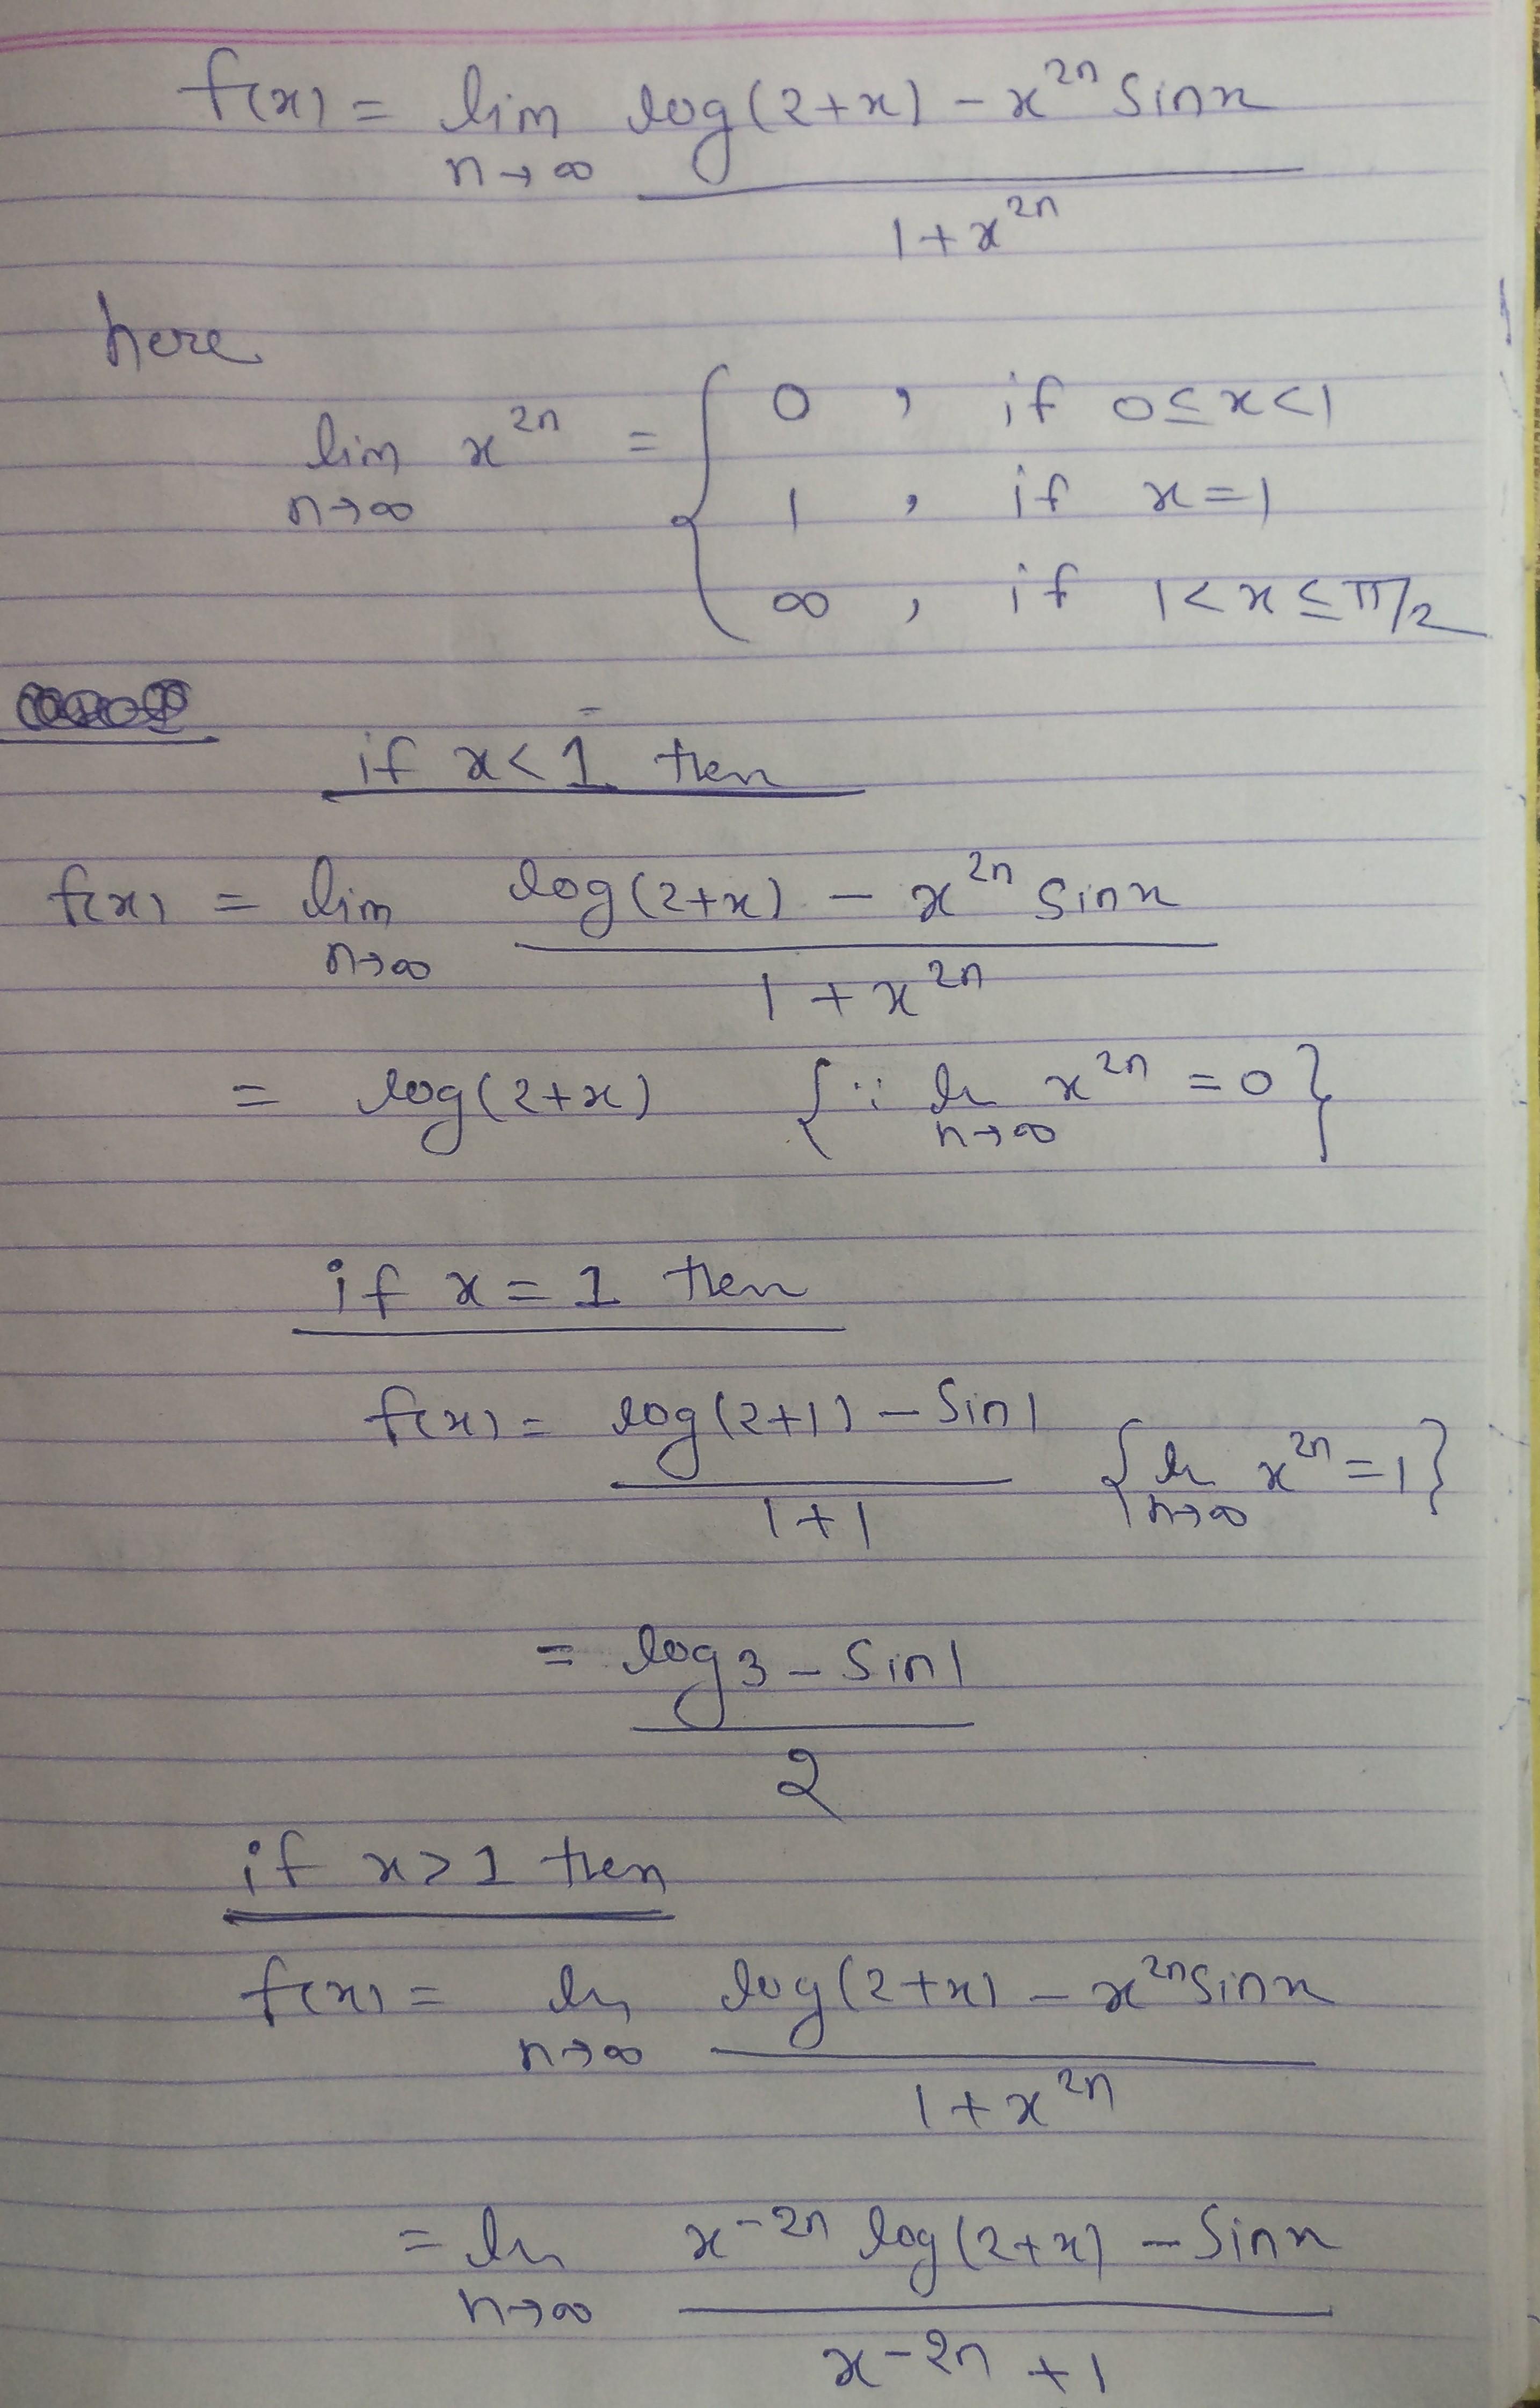 f(x) = lim n→∞ (log(2+x) - x^2n sinx) / (1+x^2n)
here
lim n→∞ x^2n = { 0 , if 0≤x<1
1 , if x=1
∞ , if 1<x≤π/2
if x<1 then
f(x) = lim n→∞ (log(2+x) - x^2n sinx) / (1+x^2n)
= log(2+x) {∵ lim n→∞ x^2n = 0}
if x=1 then
f(x) = (log(2+1) - sin1) / (1+1) {lim n→∞ x^2n = 1}
= (log3 - sin1) / 2
if x>1 then
f(x) = lim n→∞ (log(2+x) - x^2n sinx) / (1+x^2n)
= lim n→∞ (x^-2n log(2+x) - sinx) / (x^-2n + 1)